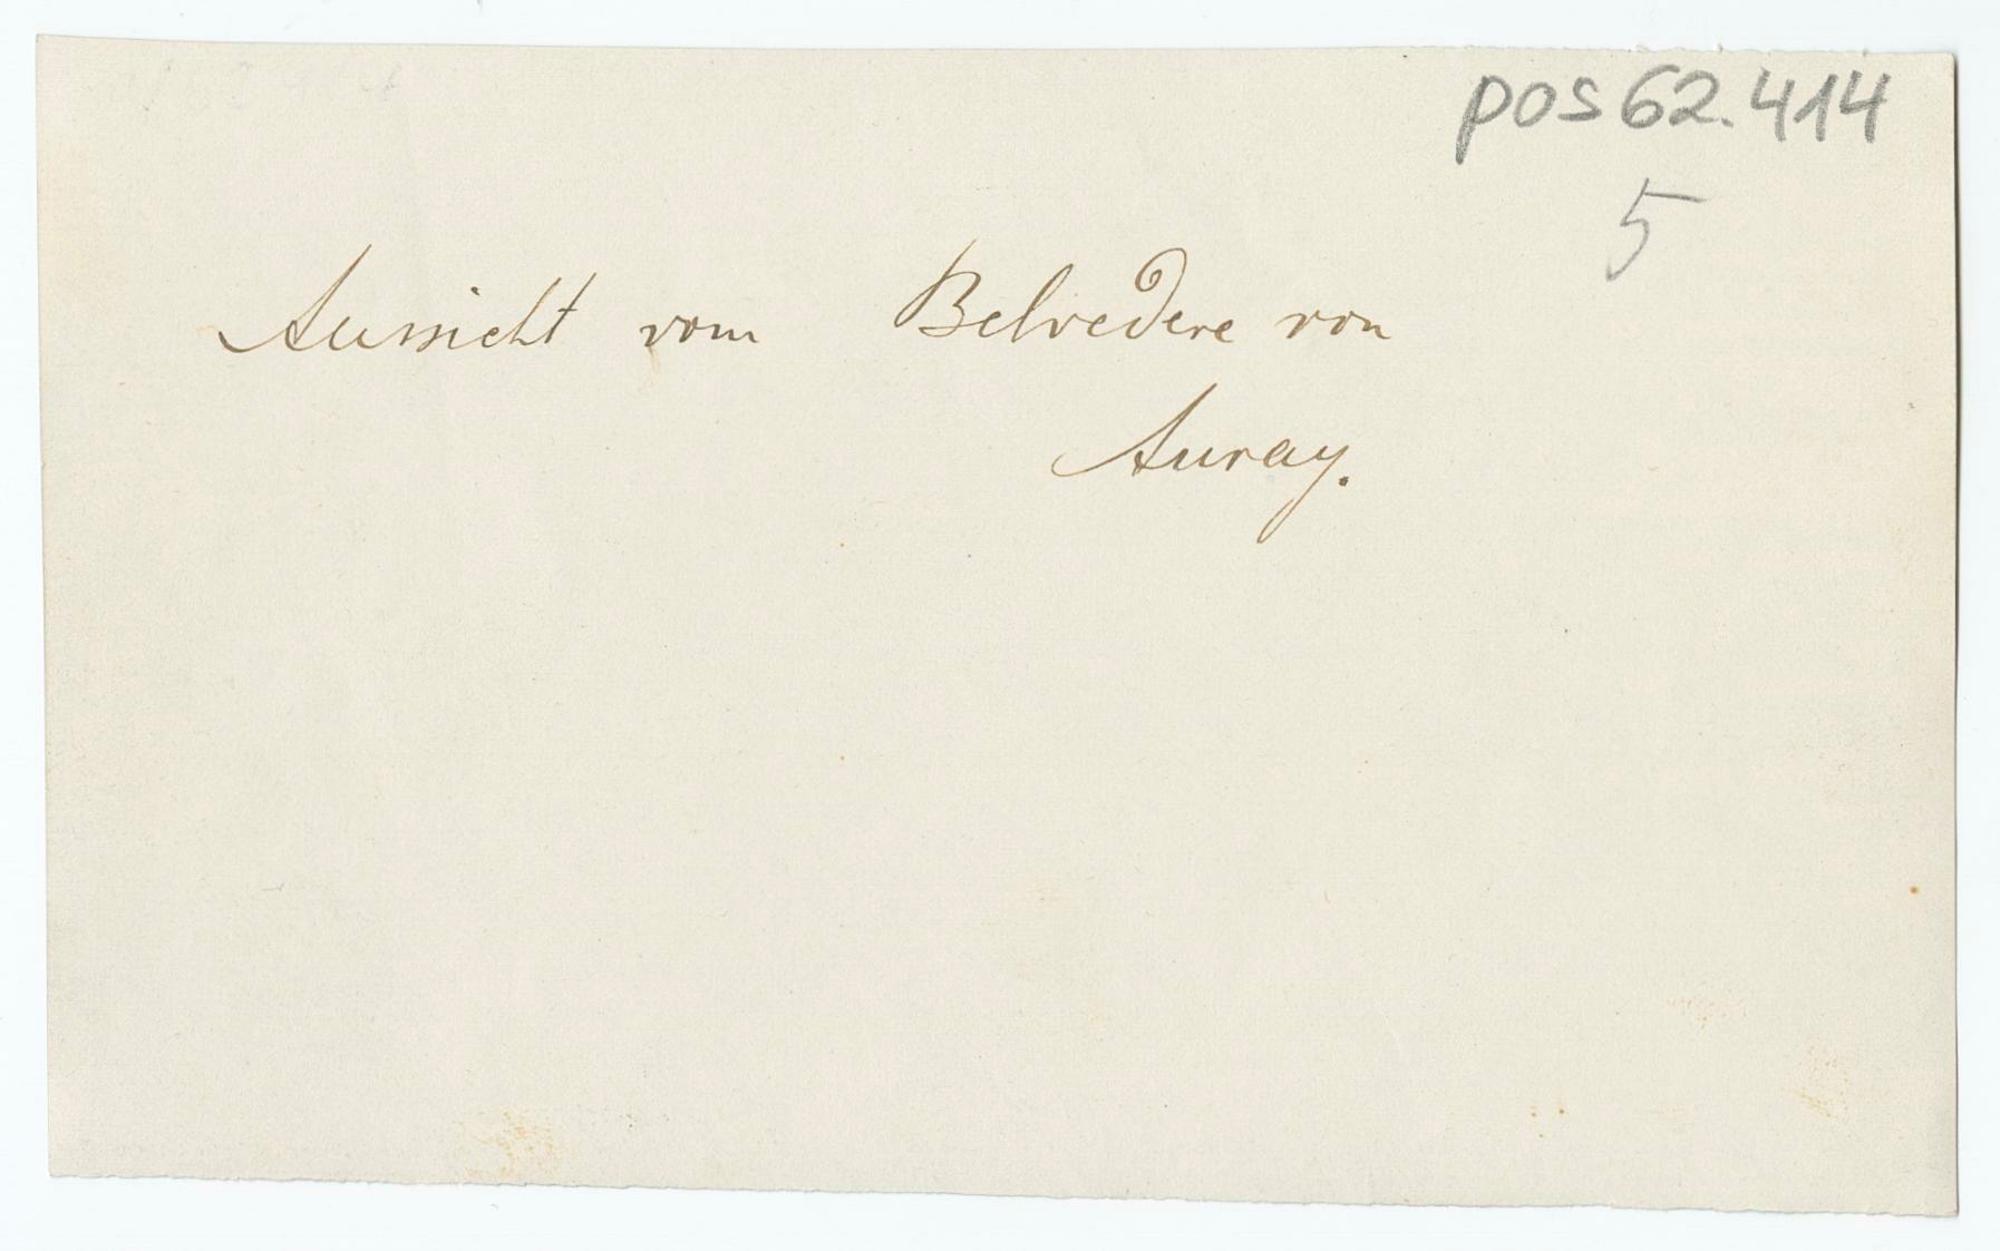 pos 62.414
5
Aussicht vom Belvedere von
Auray.